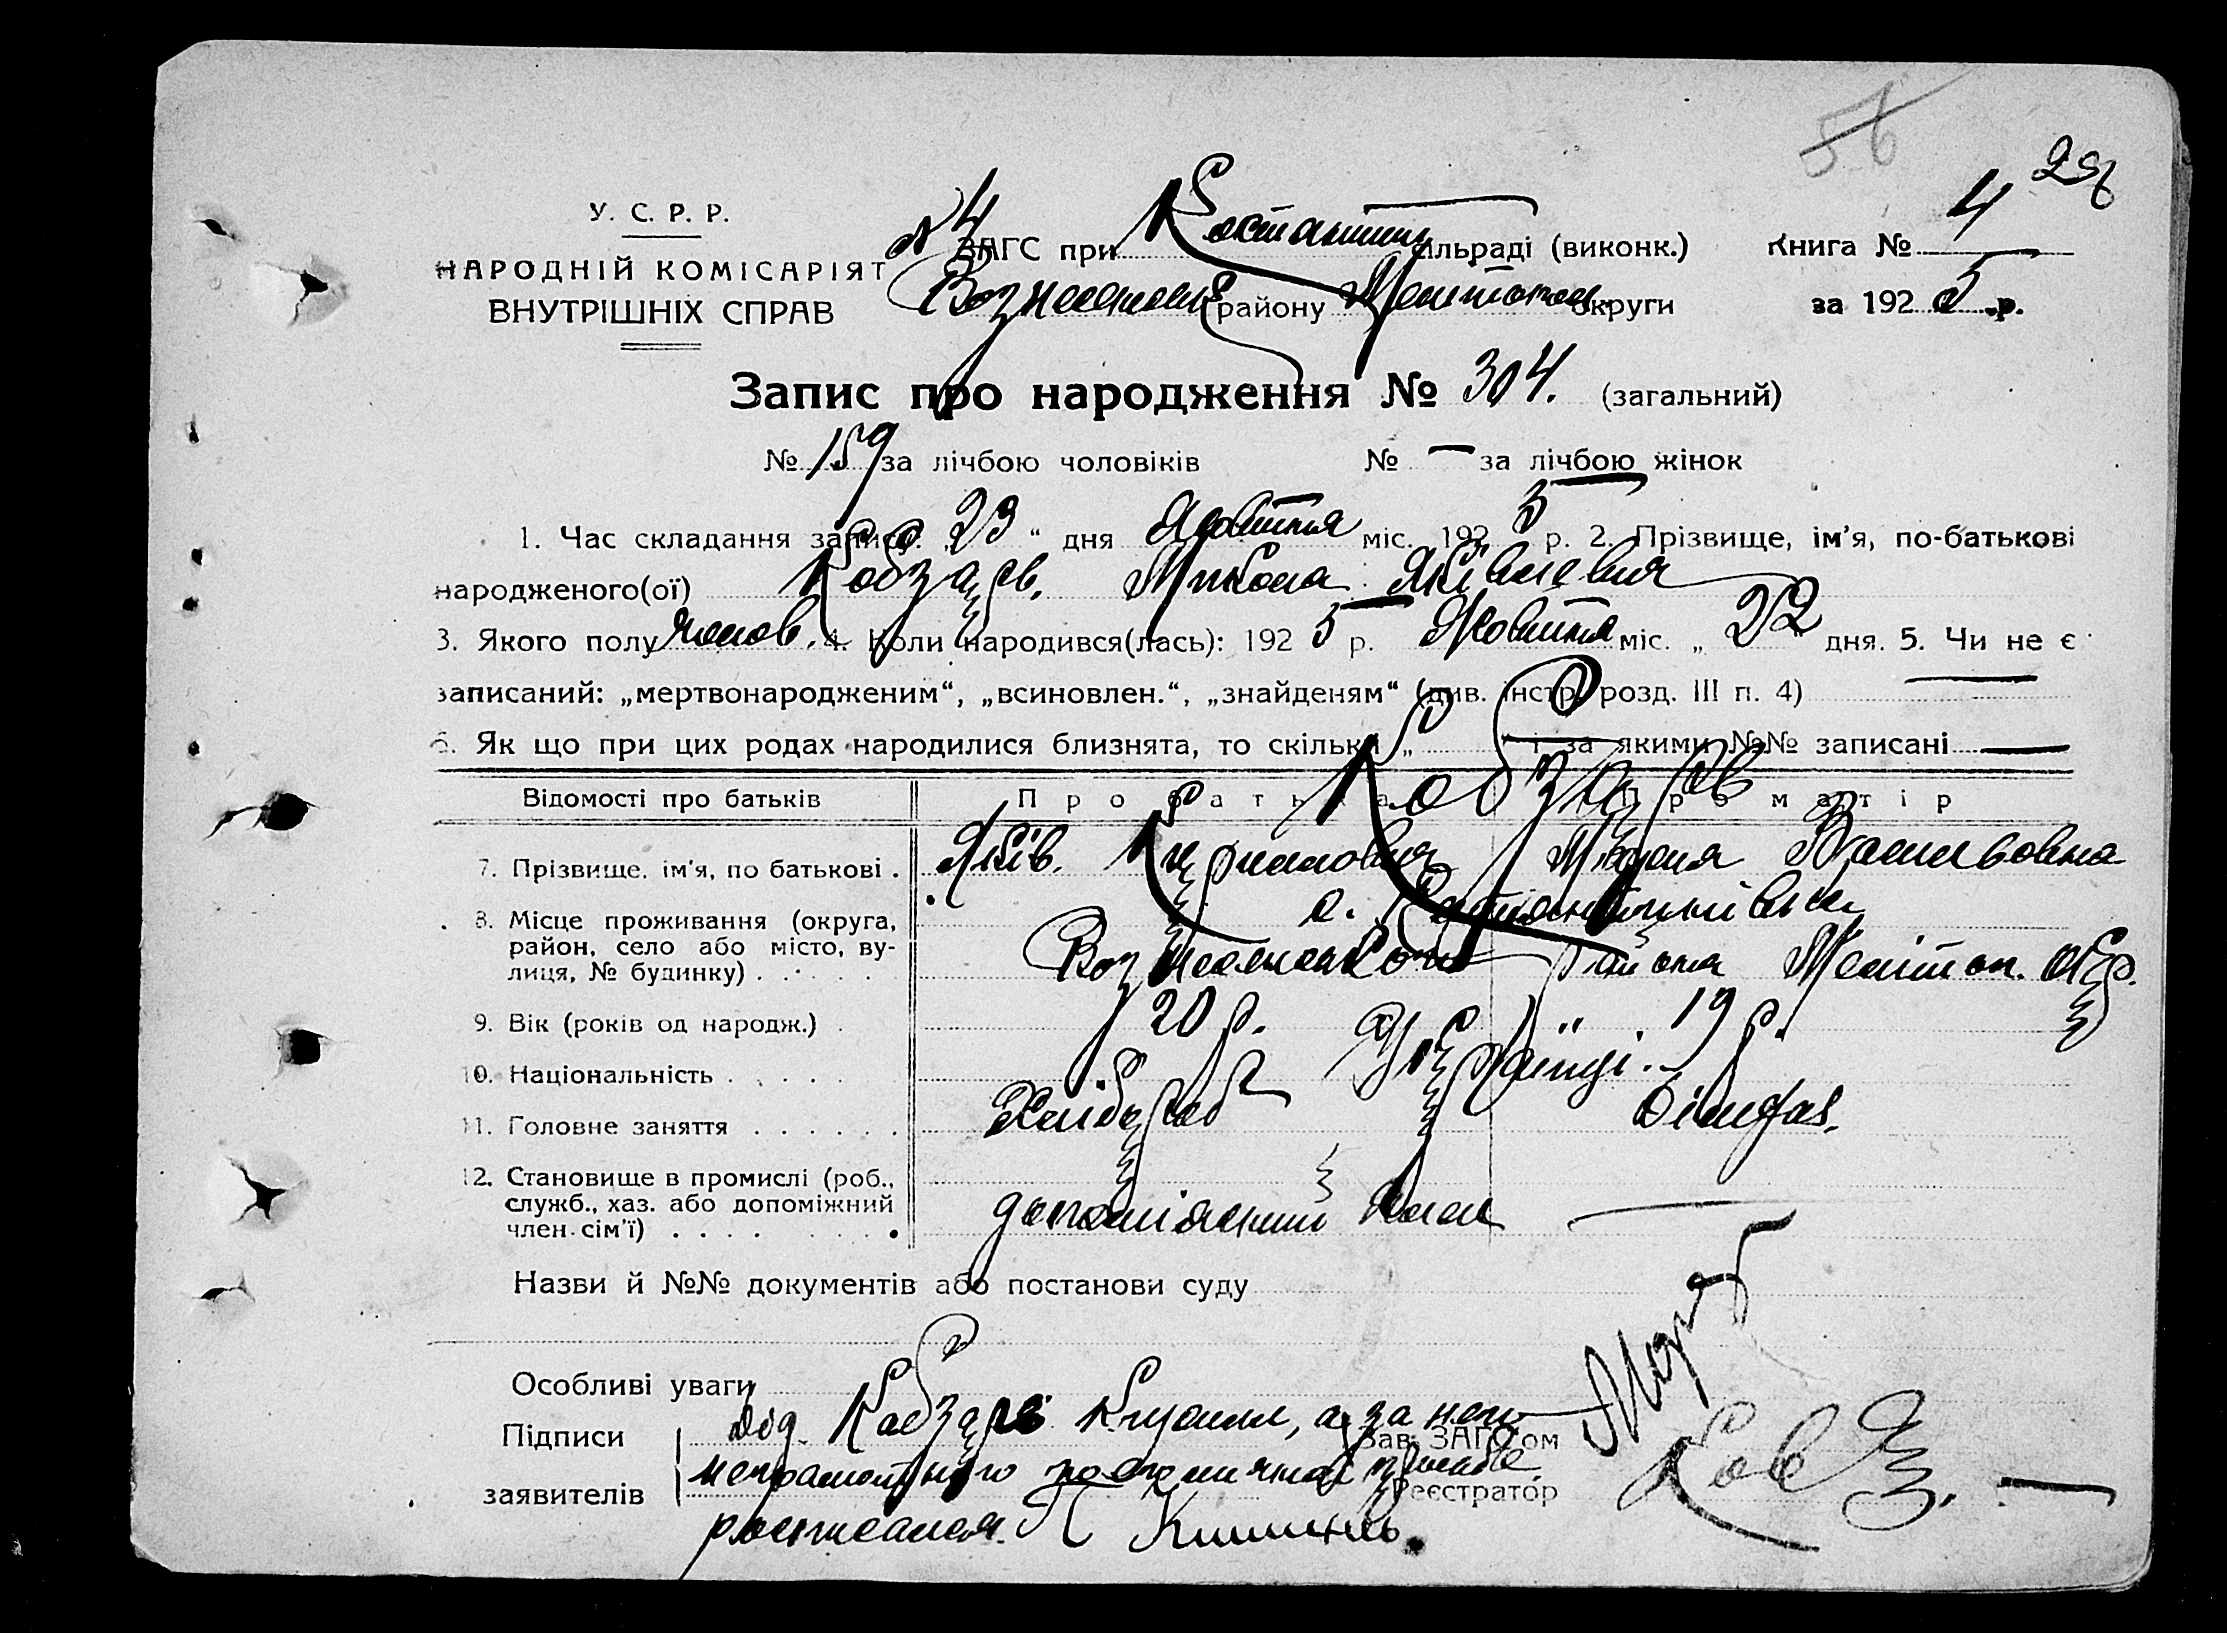 56
29б
У. С. Р. Р.
НАРОДНІЙ КОМІСАРІЯТ
ВНУТРІШНІХ СПРАВ
№ 4 ЗАГС при Костантин сільраді (виконк.) Книга № 4
Вознесенськ району Мелітопол. округи за 1925 р.
Запис про народження № 304. (загальний)
№ 159 за лічбою чоловіків № — за лічбою жінок
1. Час складання запису: „23“ дня Жовтня міс. 1925 р. 2. Прізвище, ім'я, по-батькові
народженого(ої) Кобзарь. Микола Яківлевич
3. Якого полу чолов. 4. Коли народився(лась): 1925 р. Жовтня міс. „22“ дня. 5. Чи не є
записаний: „мертвонародженим“, „всиновлен.“, „знайденям“ (див. інстр. розд. III п. 4) —
6. Як що при цих родах народилися близнята, то скільки „ — “ і за якими №№ записані —
Відомості про батьків Про батька Про матір
Кобзарь
7. Прізвище, ім'я, по батькові . Яків. Кирилович Мария Василовна
8. Місце проживання (округа, с. Костянтинівка
район, село або місто, ву- Вознесенського району Мелітоп. окр.
лиця, № будинку) . . .
9. Вік (років од народж.) . 20 р. 19 р.
10. Національність . . . . . Українці.
11. Головне заняття . . . . . . Хлібороб Домгос.
12. Становище в промислі (роб.,
служб., хаз. або допоміжний допоміжний член —
член сім'ї) . . . . . . . .
Назви й №№ документів або постанови суду
Особливі уваги
Підписи Дід Кобзарь Кирилл, а за него
Зав. ЗАГС'ом
неграмотного по его личной прозьбе
заявителів Реєстратор
росписался.